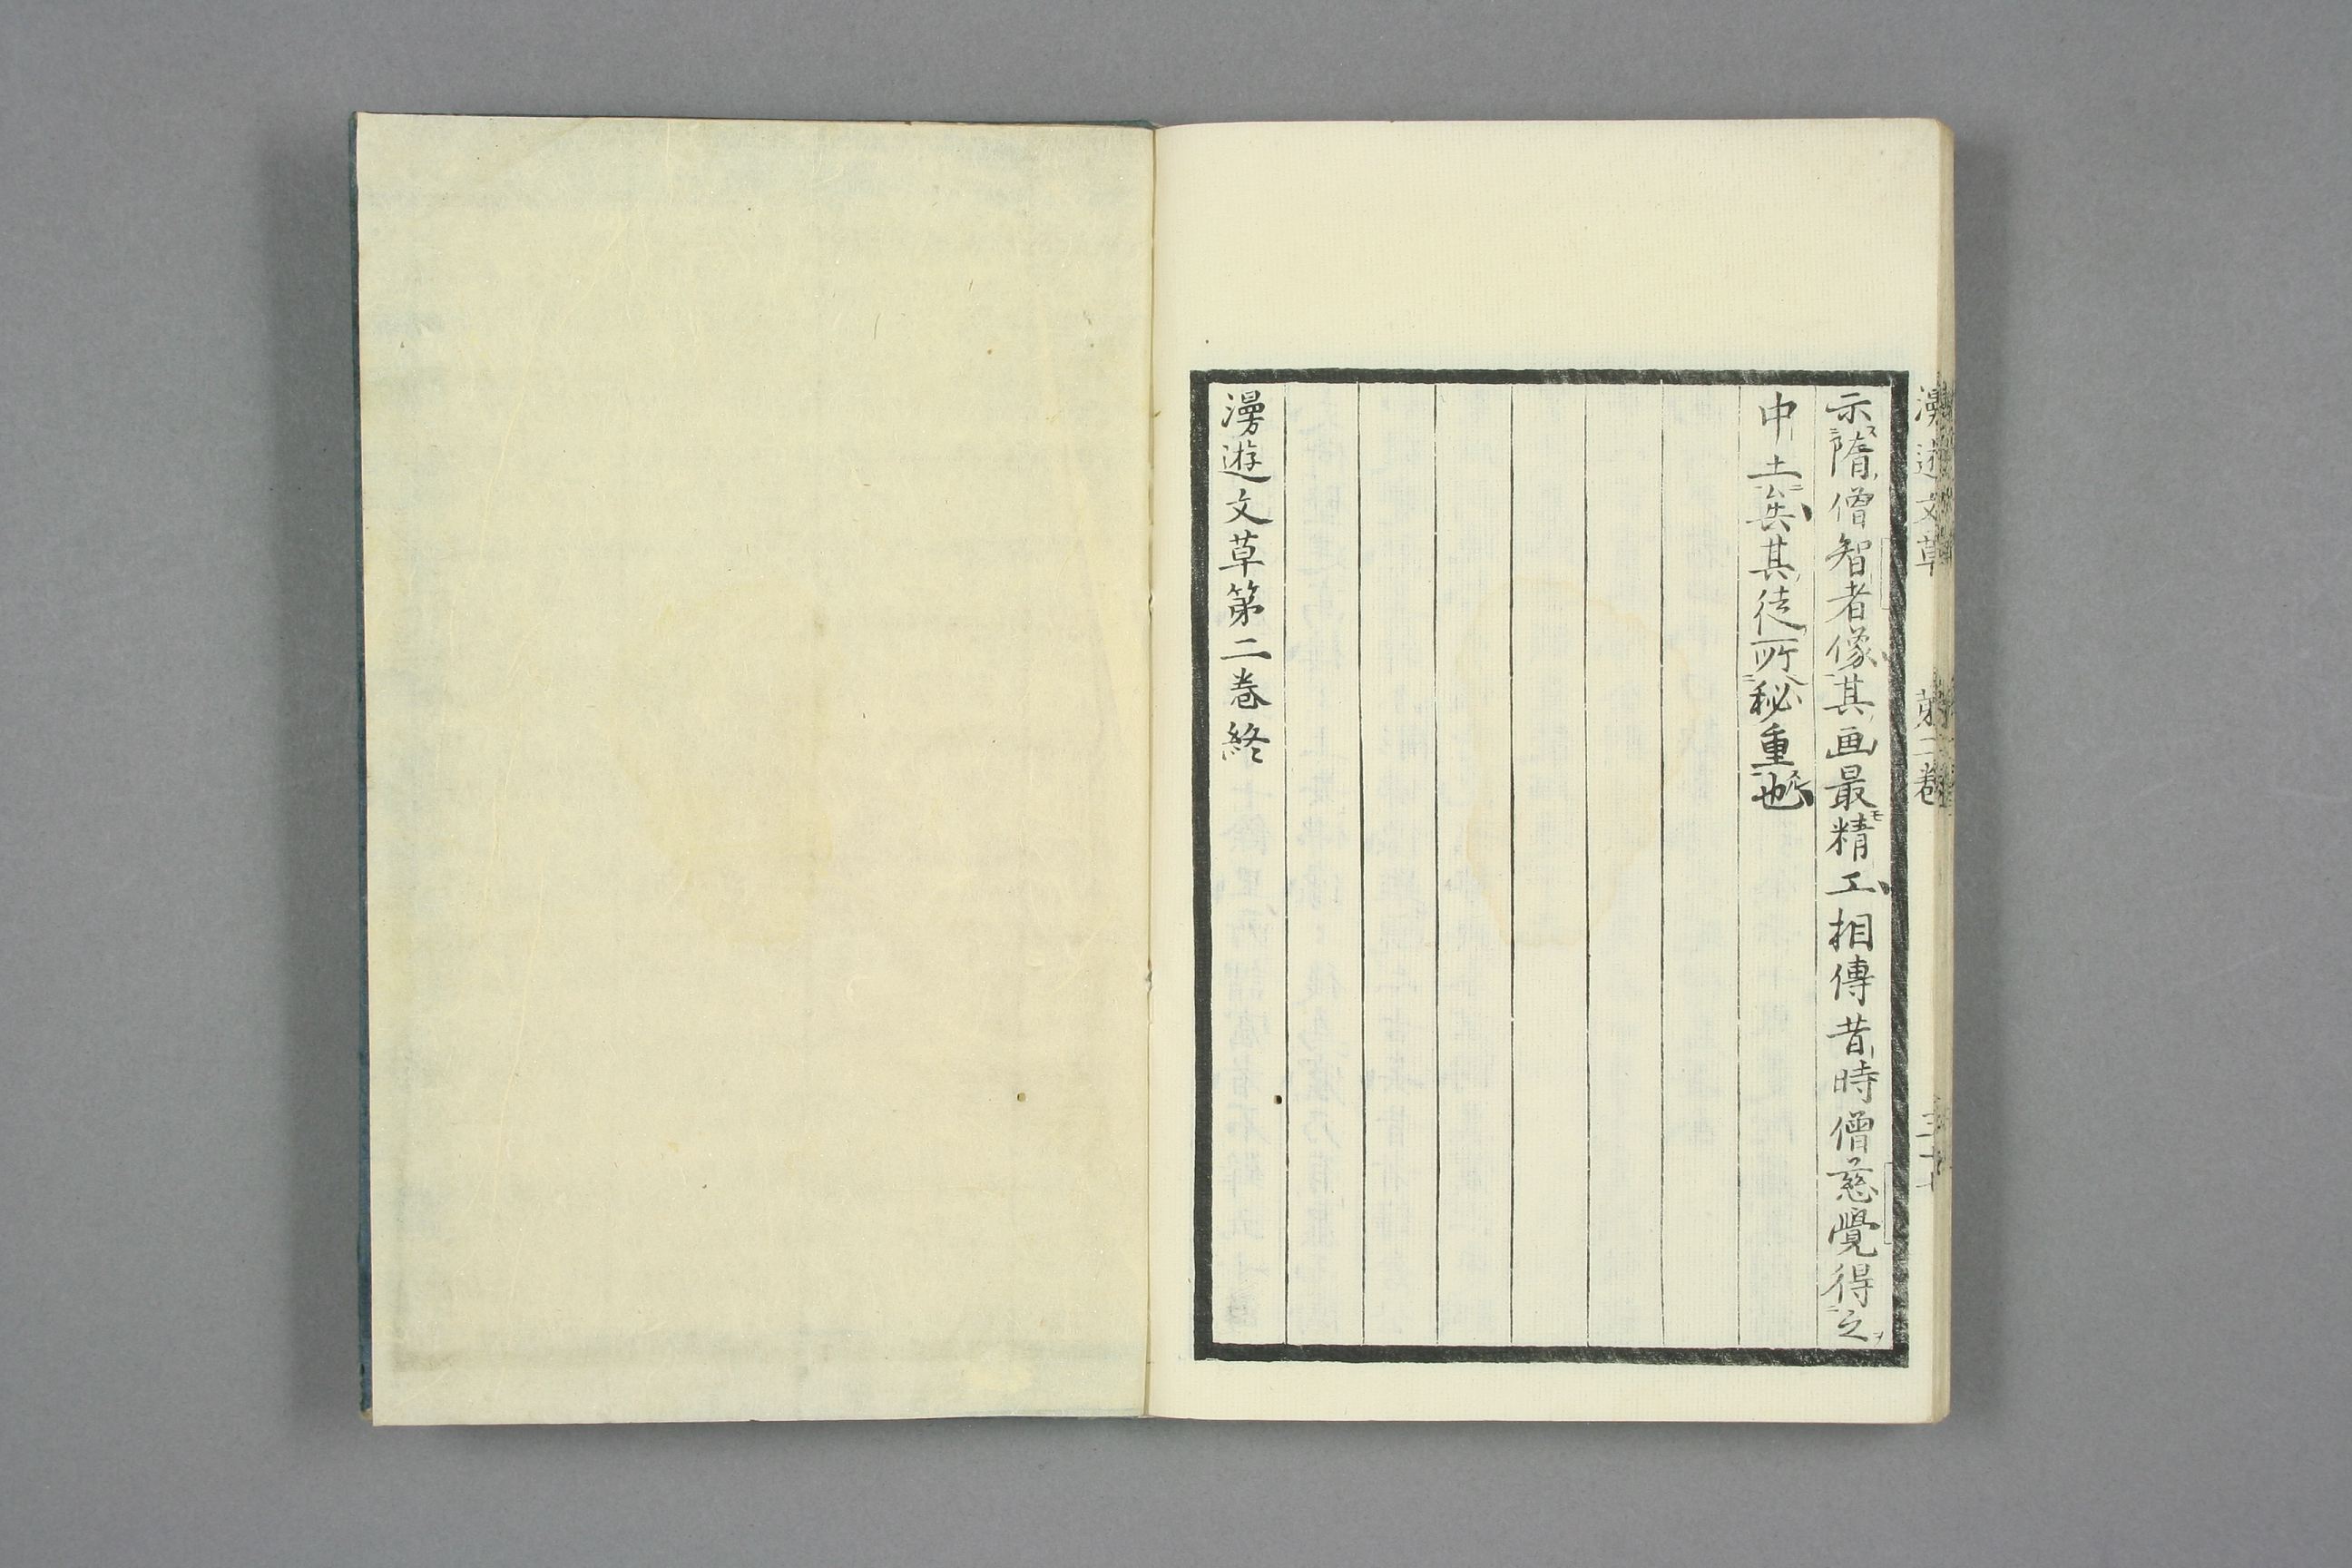 示隋僧智者像其画最精工相傳昔時僧慈覺得之
中土矣其徒所秘重也
漫遊文草第二卷終
漫遊文草 第二卷